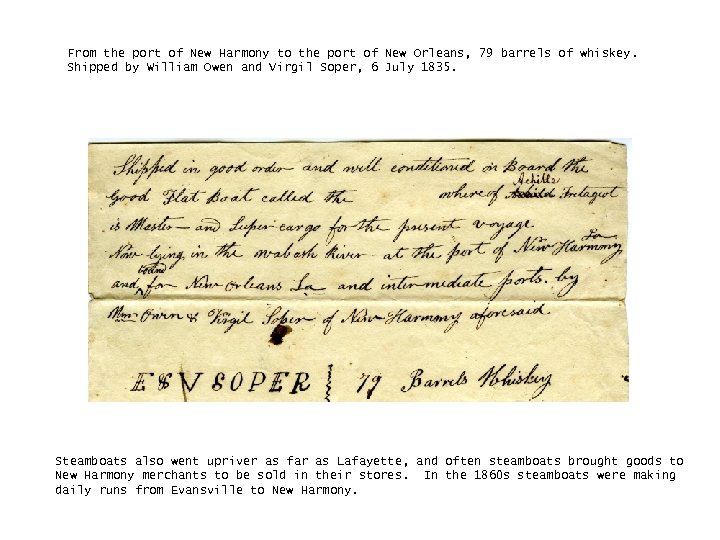 From the port of New Harmony to the port of New Orleans, 79 barrels of whiskey.
Shipped by William Owen and Virgil Soper, 6 July 1835.
Shipped in good order and well conditioned on Board the
Achilles
Good Flat Boat called the whereof Fretageot
is Master and Super cargo for the present voyage
Now lying in the wabash River at the port of New Harmony Ia
bound
and for New Orleans La and intermediate ports. by
Wm Owen & Virgil Soper of New Harmony aforesaid
E & V SOPER } 79 Barrels Whiskey
Steamboats also went upriver as far as Lafayette, and often steamboats brought goods to
New Harmony merchants to be sold in their stores. In the 1860s steamboats were making
daily runs from Evansville to New Harmony.